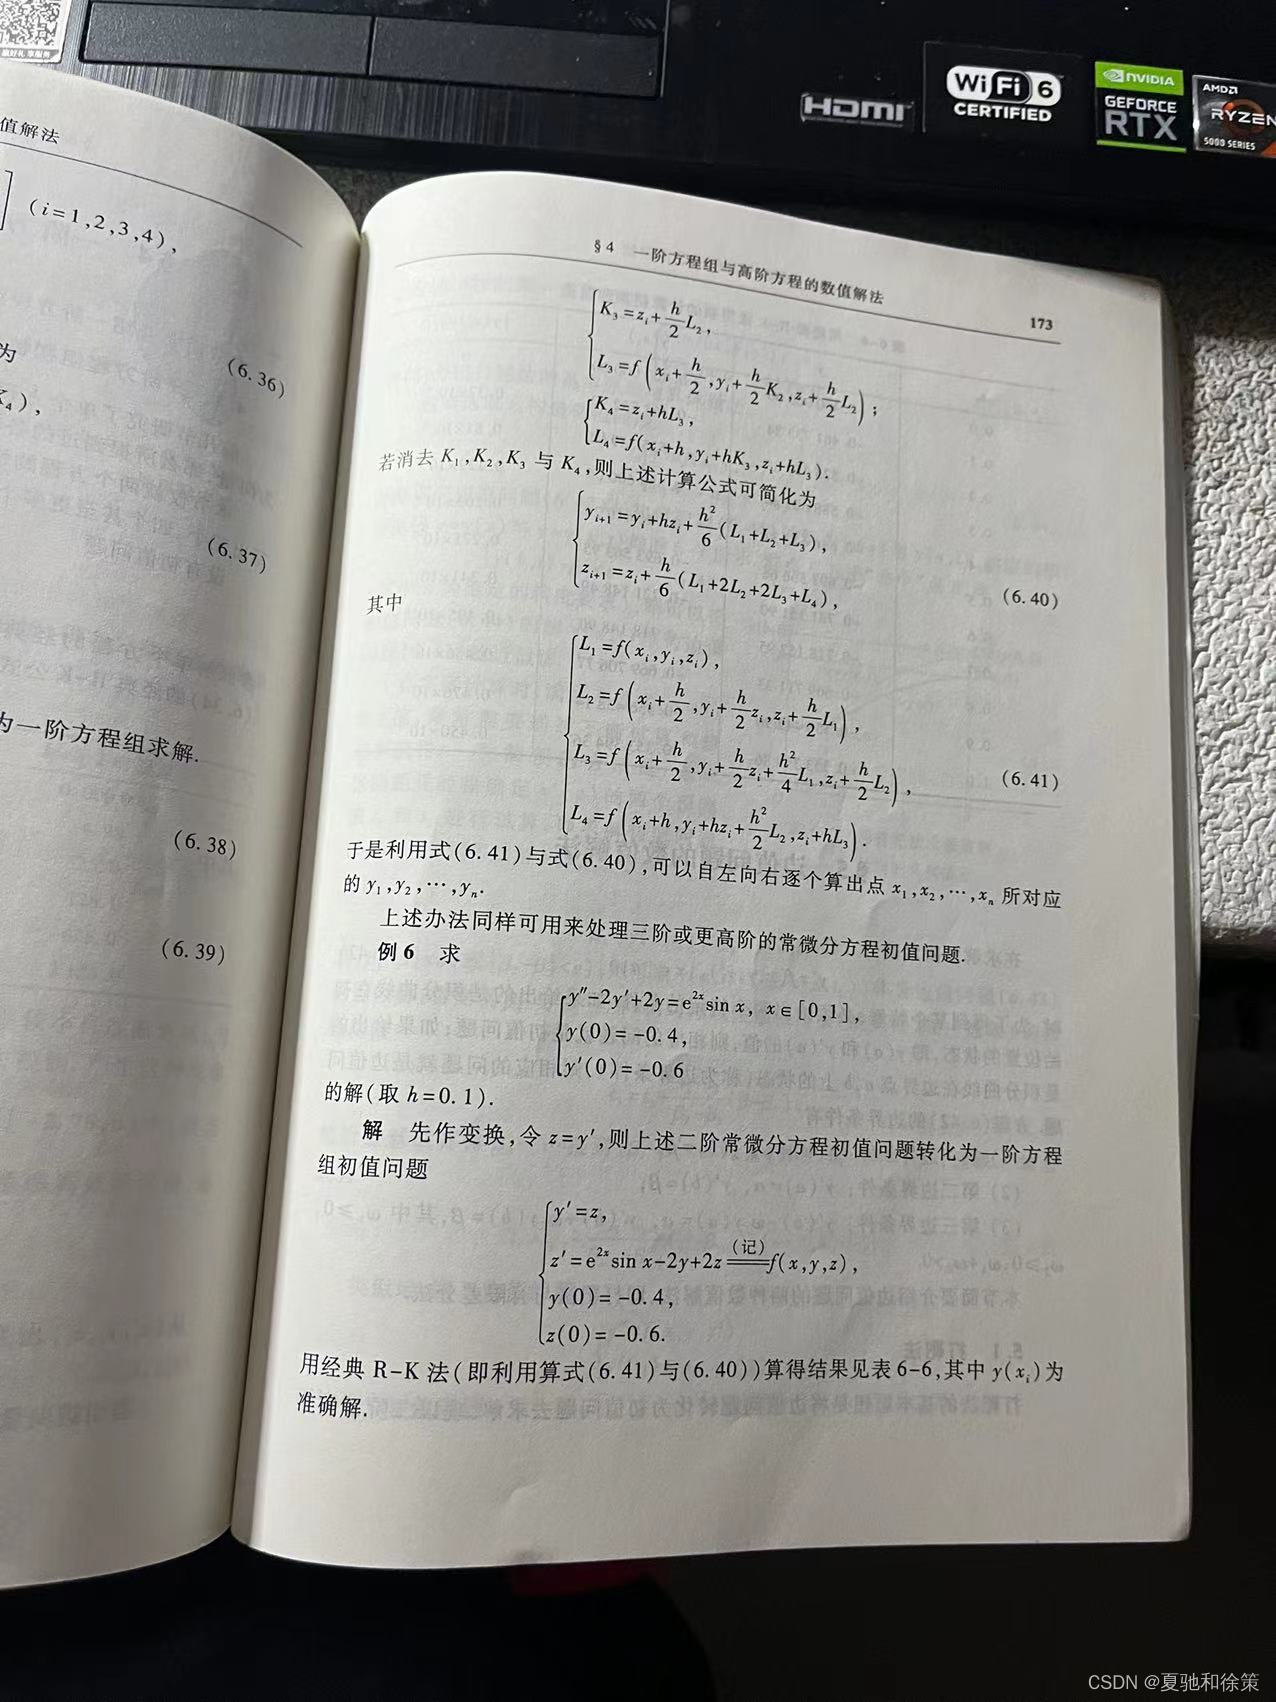 HDMI
WiFi 6
CERTIFIED
NVIDIA
GEFORCE
RTX
AMD
RYZEN
5000 SERIES
值解法
(i=1,2,3,4),
为
(6.36)
K₄),
(6.37)
为一阶方程组求解.
(6.38)
(6.39)
§4 一阶方程组与高阶方程的数值解法
173
K₃=zᵢ+h/2 L₂,
L₃=f(xᵢ+h/2,yᵢ+h/2 K₂,zᵢ+h/2 L₂);
K₄=zᵢ+hL₃,
L₄=f(xᵢ+h,yᵢ+hK₃,zᵢ+hL₃).
若消去 K₁,K₂,K₃ 与 K₄,则上述计算公式可简化为
yᵢ₊₁=yᵢ+hzᵢ+h²/6(L₁+L₂+L₃),
zᵢ₊₁=zᵢ+h/6(L₁+2L₂+2L₃+L₄),
(6.40)
其中
L₁=f(xᵢ,yᵢ,zᵢ),
L₂=f(xᵢ+h/2,yᵢ+h/2 zᵢ,zᵢ+h/2 L₁),
L₃=f(xᵢ+h/2,yᵢ+h/2 zᵢ+h²/4 L₁,zᵢ+h/2 L₂),
(6.41)
L₄=f(xᵢ+h,yᵢ+hzᵢ+h²/2 L₂,zᵢ+hL₃).
于是利用式(6.41)与式(6.40),可以自左向右逐个算出点 x₁,x₂,⋯,xₙ 所对应
的 y₁,y₂,⋯,yₙ.
上述办法同样可用来处理三阶或更高阶的常微分方程初值问题.
例 6 求
y″-2y′+2y=e²ˣsin x, x∈[0,1],
y(0)=-0.4,
y′(0)=-0.6
的解(取 h=0.1).
解 先作变换,令 z=y′,则上述二阶常微分方程初值问题转化为一阶方程
组初值问题
y′=z,
z′=e²ˣsin x-2y+2z ══(记) f(x,y,z),
y(0)=-0.4,
z(0)=-0.6.
用经典 R-K 法(即利用算式(6.41)与(6.40))算得结果见表 6-6,其中 y(xᵢ)为
准确解.
CSDN @夏驰和徐策